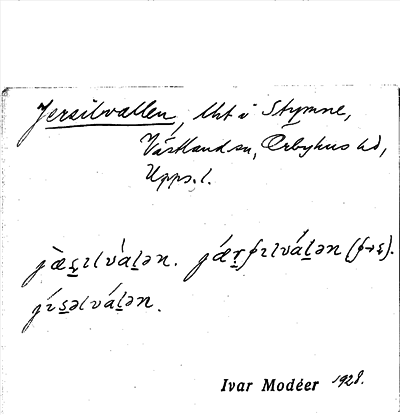 Jersilvallen, Uht i Stymne,
Västland sn, Örbyhus hd,
Upps. l.
jæ̀ʂɩlvàlən. jǽrʂɩlválən
jɩ́səlválən.
Ivar Modéer 1928.